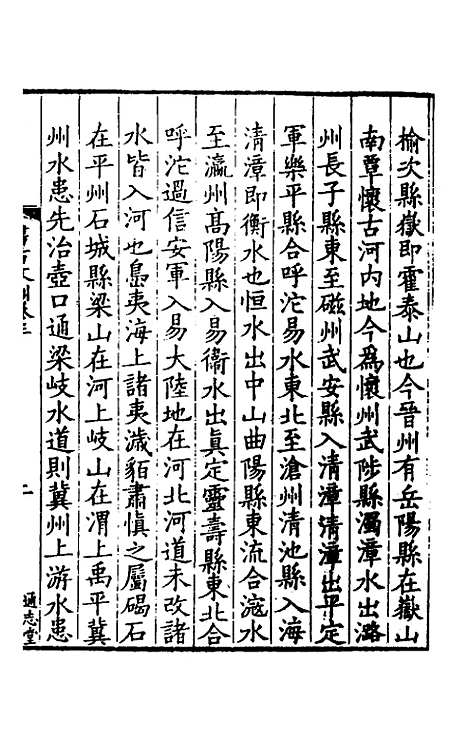 榆次縣嶽即霍泰山也今晉州有岳陽縣在嶽山
南覃懷古河內地今爲懷州武陟縣濁漳水出潞
州長子縣東至磁州武安縣入清漳清漳出平定
軍樂平縣合呼沱易水東北至滄州清池縣入海
清漳即衡水也恒水出中山曲陽縣東流合滱水
至瀛州高陽縣入易衞水出眞定靈壽縣東北合
呼沱過信安軍入易大陸地在河北河道未改諸
水皆入河也島夷海上諸夷濊貊肅愼之屬碣石
在平州石城縣梁山在河上岐山在渭上禹平冀
州水患先治壺口通梁岐水道則冀州上游水患
通志堂